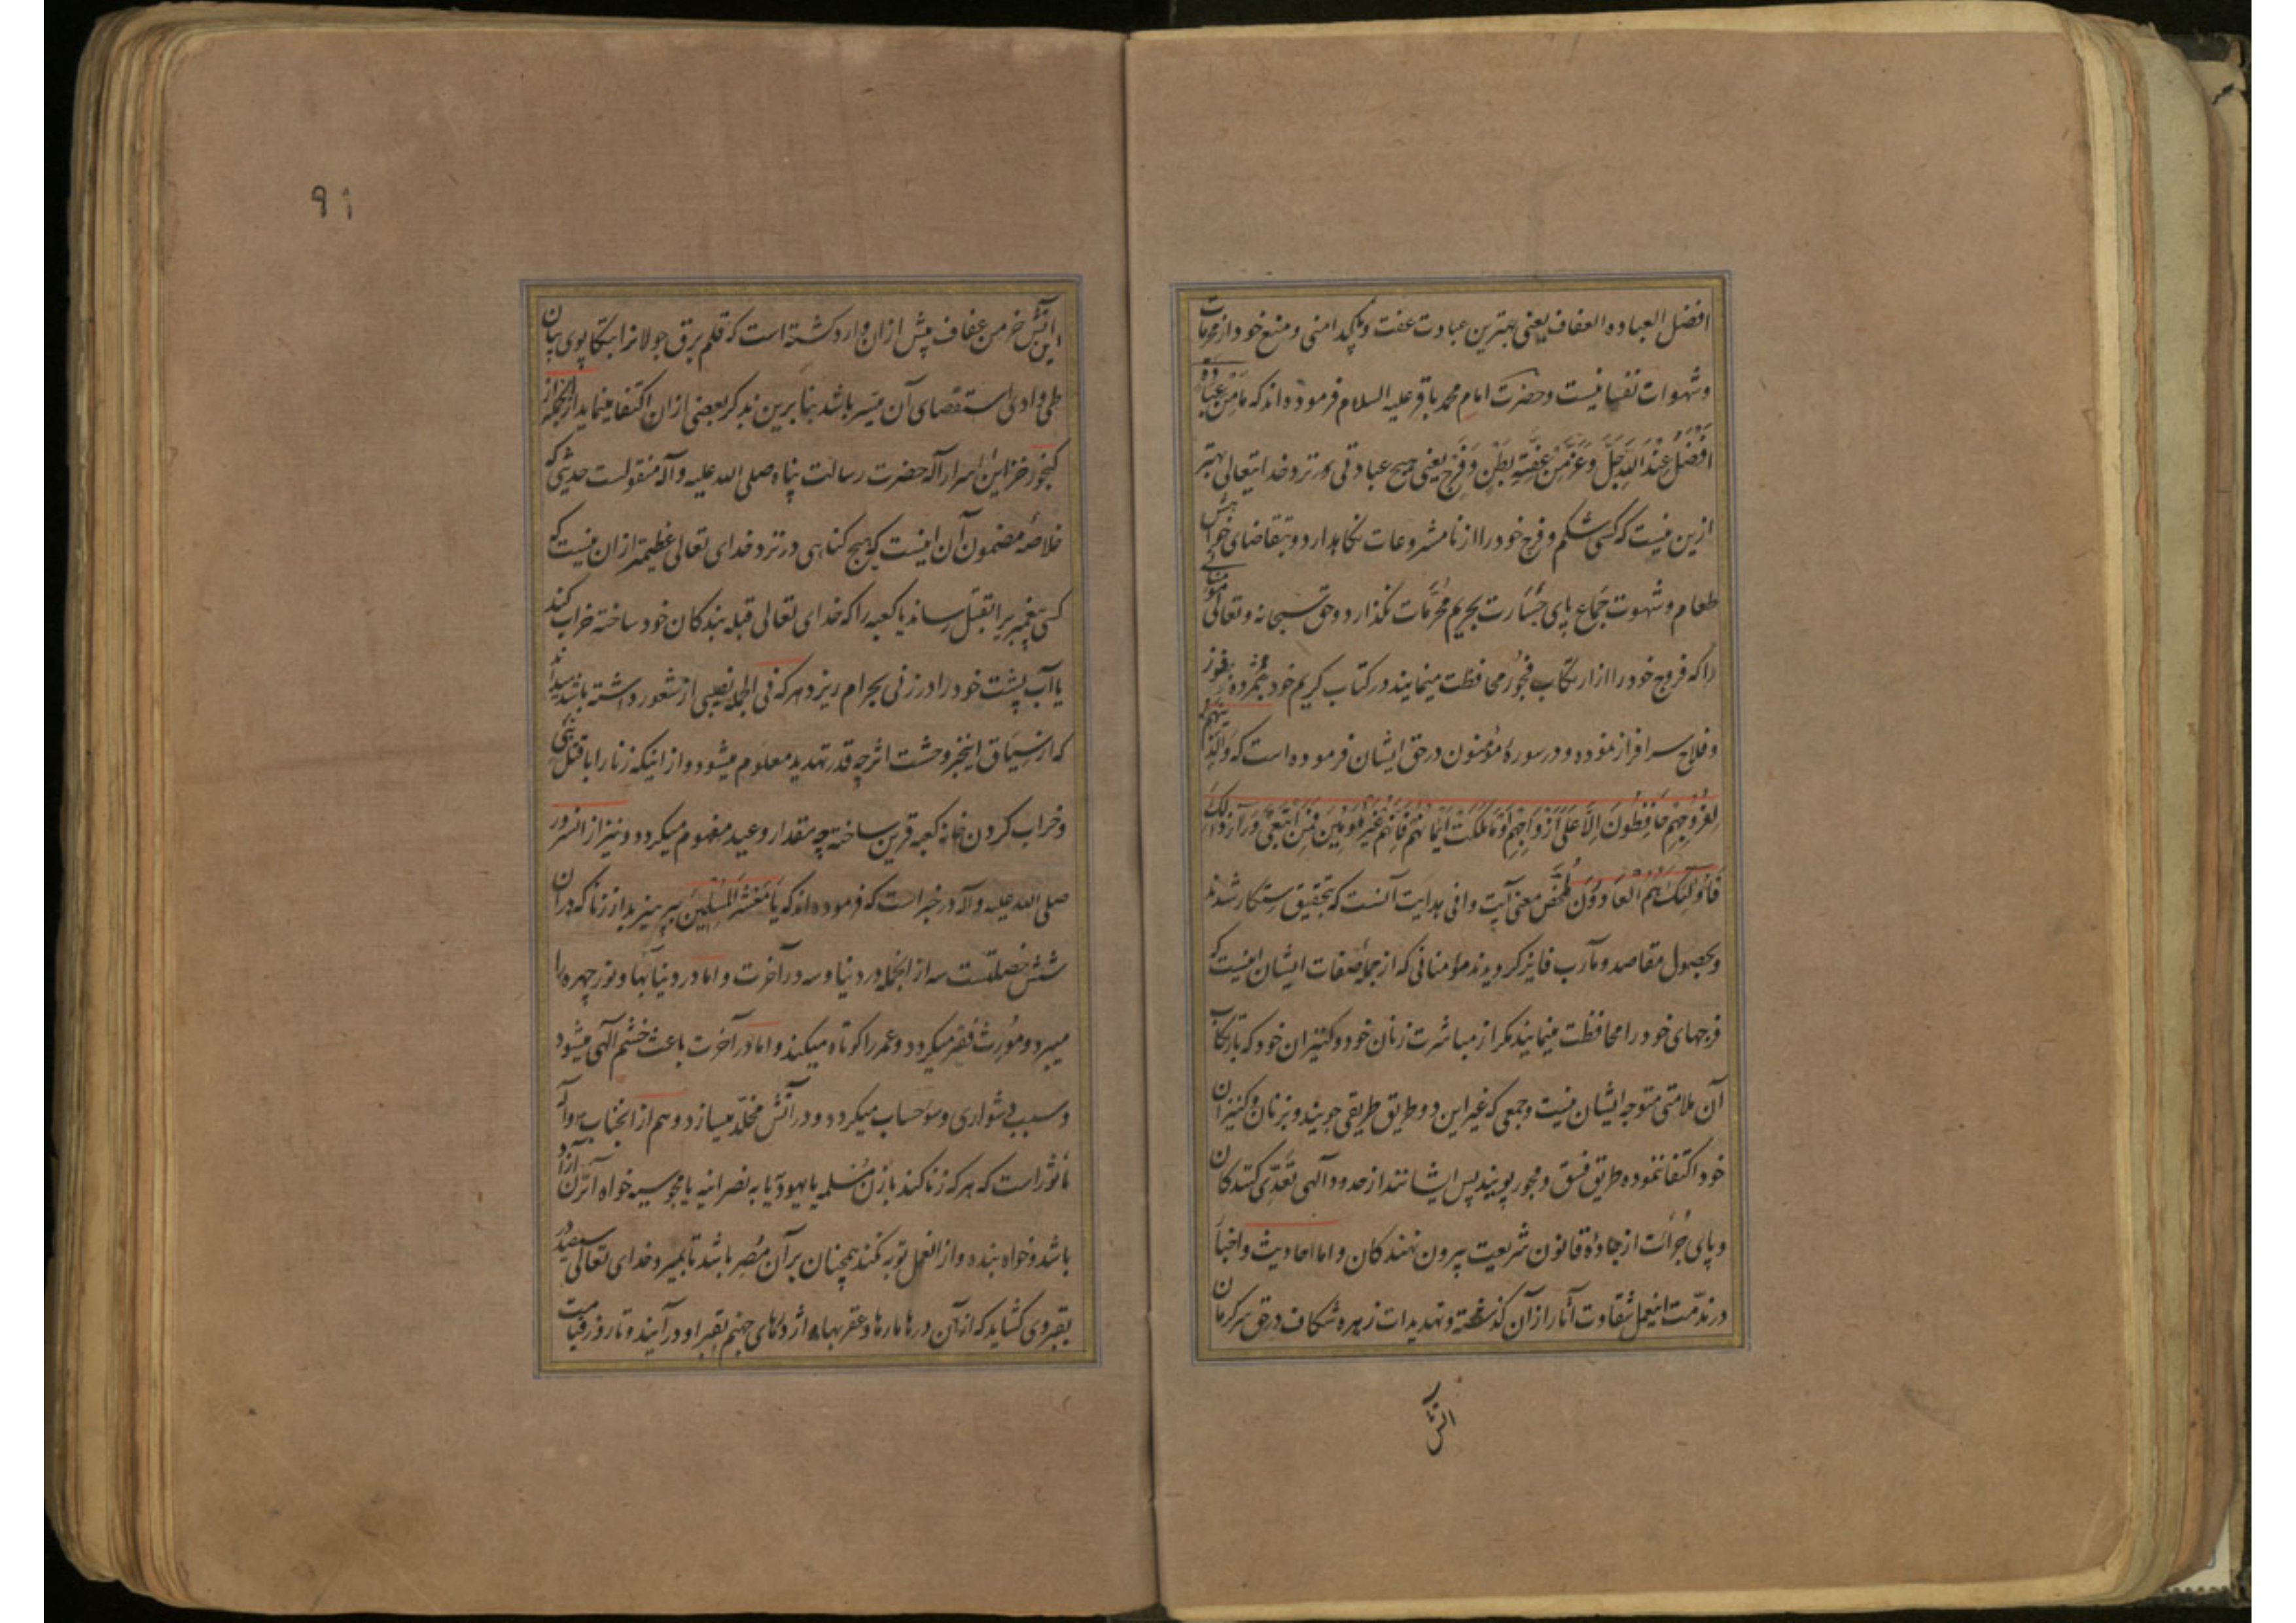 افضل العباده العفاف یعنی بهترین عبادت عفت و پاکدامنی و منع خود از محرمات
و شهوات نفسانیست و حضرت امام محمد باقر علیه السلام فرموده‌اند که مَا مِنْ عِبَادَةٍ
اَفْضَلُ عِنْدَ اللهِ جَلَّ وَعَزَّ مِنْ عِفَّتِهِ بَطْنٍ وَ فَرْجٍ یعنی هیچ عبادتی در نزد خدایتعالی بهتر
ازین نیست که کسی شکم و فرج خود را از نامشروعات نگاهدارد و بتقاضای خواهش
طعام و شهوت جماع پای جسارت بحریم محرمات نگذارد و حق سبحانه و تعالی
را که فروج خود را از ارتکاب فجور محافظت مینمایند در کتاب کریم خود مژده بفوز
و فلاح سرافراز نموده و در سورهٔ مؤمنون در حق ایشان فرموده است که وَالَّذِینَهُمْ
لِفُرُوجِهِمْ حَافِظُونَ اِلَّا عَلَی اَزْوَاجِهِمْ اَوْ مَا مَلَکَتْ اَیْمَانُهُمْ فَاِنَّهُمْ غَیْرُ مَلُومِینَ فَمَنِ ابْتَغَی وَرَآءَ ذَلِکَ
فَاُولَئِکَ هُمُ العَادُونَ ملخص معنی آیت وافی هدایت آنست که بتحقیق رستکار شدند
و بحصول مقاصد و مآرب فایز کردیدند مؤمنانی که از جملهٔ صفات ایشان اینست که
فرجهای خود را محافظت مینمایند مکر از مباشرت زنان خود و کنیزان خود که بارتکاب
آن ملامتی متوجه ایشان نیست و جمعی که غیر این دو طریق طریقی جویند و بزنان و کنیزان
خود اکتفا ننموده طریق فسق و فجور پویند پس ایشانند از حدود الهی تعدی کنندکان
و پای جرأت از جادهٔ قانون شریعت بیرون نهندکان و اما احادیث و اخبار
در مذمت اینعمل شقاوت آثار از آن کذشته و تهدیدات زهره شکاف در حق سرکرمان
آتش
۹۱
این آتش خرمن عفاف پیش ازان وارد کشته است که قلم برق جولانرا بتکاپوی بیان
طی وادی استقصای آن میسر باشد بنابرین بذکر بعضی ازان اکتفا مینماید از انجمله از
کنجور خزاین اسرار اله حضرت رسالت پناه صلی الله علیه و آله منقولست حدیثی که
خلاصهٔ مضمون آن اینست که هیچ کناهی در نزد خدای تعالی عظیمتر ازان نیست که
کسی پیغمبریرا بقتل رساند یا کعبه را که خدای تعالی قبله بندکان خود ساخته خراب کند
یا آب پشت خود را در زنی بحرام ریزد هر که فی الجمله نصیبی از شعور داشته باشد میداند
که از سیاق اینخبر وحشت اثر چه قدر تهدید معلوم میشود و از اینکه زنا را با قتل نبی
و خراب کردن خانه کعبه قرین ساخته چه مقدار وعید مفهوم میکردد و نیز از انسرور
صلی الله علیه و آله در خبر است که فرموده‌اند که یَا مَعْشَرَ الْمُسْلِمِینَ بپرهیزید از زنا که دران
شش خصلتست سه از انجمله در دنیا و سه در آخرت و اما در دنیا بها و نور چهره را
میبرد و مورث فقر میکردد و عمر را کوتاه میکند و اما در آخرت باعث خشم الهی میشود
و سبب دشواری و سوء حساب میکردد و در آتش مخلد میسازد و هم از انجناب ص و آله
مأثور است که هر که زنا کند با زن مسلمه یا یهودیا یا به نصرانیه یا مجوسیه خواه آنزن آزاد
باشد و خواه بنده و از انعمل توبه نکند همچنان بر آن مصر باشد تا بمیرد خدای تعالی سیصد در
بقبر وی کشاید که از آن درها مارها و عقربها و اژدهای جهنم بقبر او در آیند و تا روز قیامت